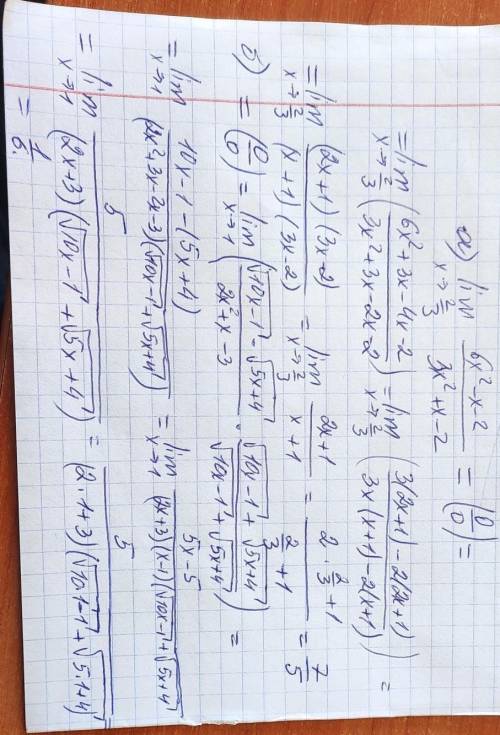 а) lim x→2/3 (6x²-x-2)/(3x²+x-2) = (0/0) =
= lim x→2/3 ((6x²+3x-4x-2)/(3x²+3x-2x-2)) = lim x→2/3 ((3(2x+1)-2(2x+1))/(3x(x+1)-2(x+1))) =
= lim x→2/3 ((2x+1)(3x-2))/((x+1)(3x-2)) = lim x→2/3 (2x+1)/(x+1) = (2·2/3+1)/(2/3+1) = 7/5
б) = (0/0) = lim x→1 ((√10x-1 - √5x+4)/(2x²+x-3) · (√10x-1 + √5x+4)/(√10x-1 + √5x+4)) =
= lim x→1 (10x-1-(5x+4))/((2x²+3x-2x-3)(√10x-1+√5x+4)) = lim x→1 (5x-5)/((2x+3)(x-1)(√10x-1+√5x+4))
= lim x→1 5/((2x+3)(√10x-1+√5x+4)) = 5/((2·1+3)(√10·1-1+√5·1+4))
= 1/6.